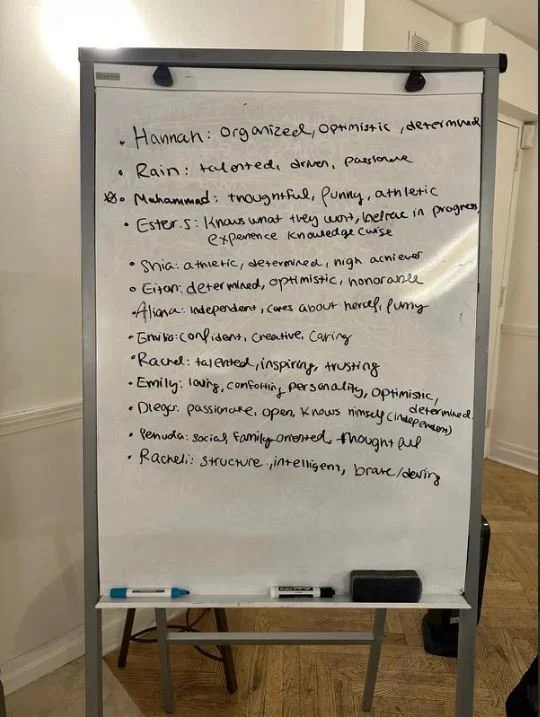 • Hannah: organized, optimistic, determined
• Rain: talented, driven, passionate
• Muhammad: thoughtful, funny, athletic
• Ester.S: Knows what they want, believe in progress,
experience knowledge
• athletic, determined, high achiever
• Eitan: determined, optimistic, honorable
• Aliana: independent, cares about herself, funny
• Emilio: confident, creative, caring
• Rachel: talented, inspiring, trusting
• Emily: loving, comforting personality, optimistic,
determined
• Diego: passionate, open, knows himself (independent)
• Yehuda: social, family oriented, thoughtful
• Racheli: structure, intelligent, brave/daring